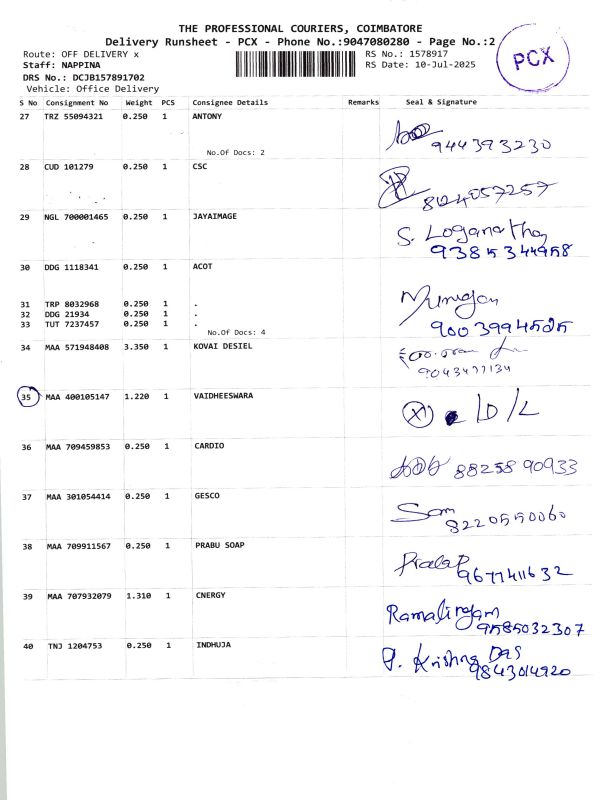 THE PROFESSIONAL COURIERS, COIMBATORE
Delivery Runsheet - PCX - Phone No.:9047080280 - Page No.:2
Route: OFF DELIVERY x
RS No.: 1578917
Staff: NAPPINA
RS Date: 10-Jul-2025
DRS No.: DCJB157891702
Vehicle: Office Delivery
PCX
S No Consignment No Weight PCS Consignee Details Remarks Seal & Signature
27 TRZ 55094321 0.250 1 ANTONY
No.Of Docs: 2
944393230
28 CUD 101279 0.250 1 CSC
8124057257
29 NGL 700001465 0.250 1 JAYAIMAGE
S. Loganathan
9385344958
30 DDG 1118341 0.250 1 ACOT
Murugan
31 TRP 8032968 0.250 1 .
32 DDG 21934 0.250 1 .
33 TUT 7237457 0.250 1 .
No.Of Docs: 4
9003994525
34 MAA 571948408 3.350 1 KOVAI DESIEL
9043477134
35 MAA 400105147 1.220 1 VAIDHEESWARA
X D/L
36 MAA 709459853 0.250 1 CARDIO
8825890933
37 MAA 301054414 0.250 1 GESCO
Som
8220550060
38 MAA 709911567 0.250 1 PRABU SOAP
Pratap
9677411632
39 MAA 707932079 1.310 1 CNERGY
Ramalingam
9585032307
40 TNJ 1204753 0.250 1 INDHUJA
P. Krishna Das
9843014920